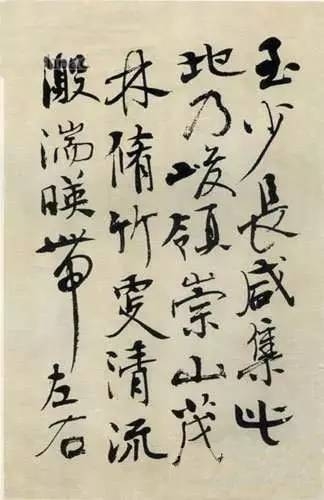 至少長咸集此
地乃峻領崇山茂
林脩竹更清流
激湍暎帶左右